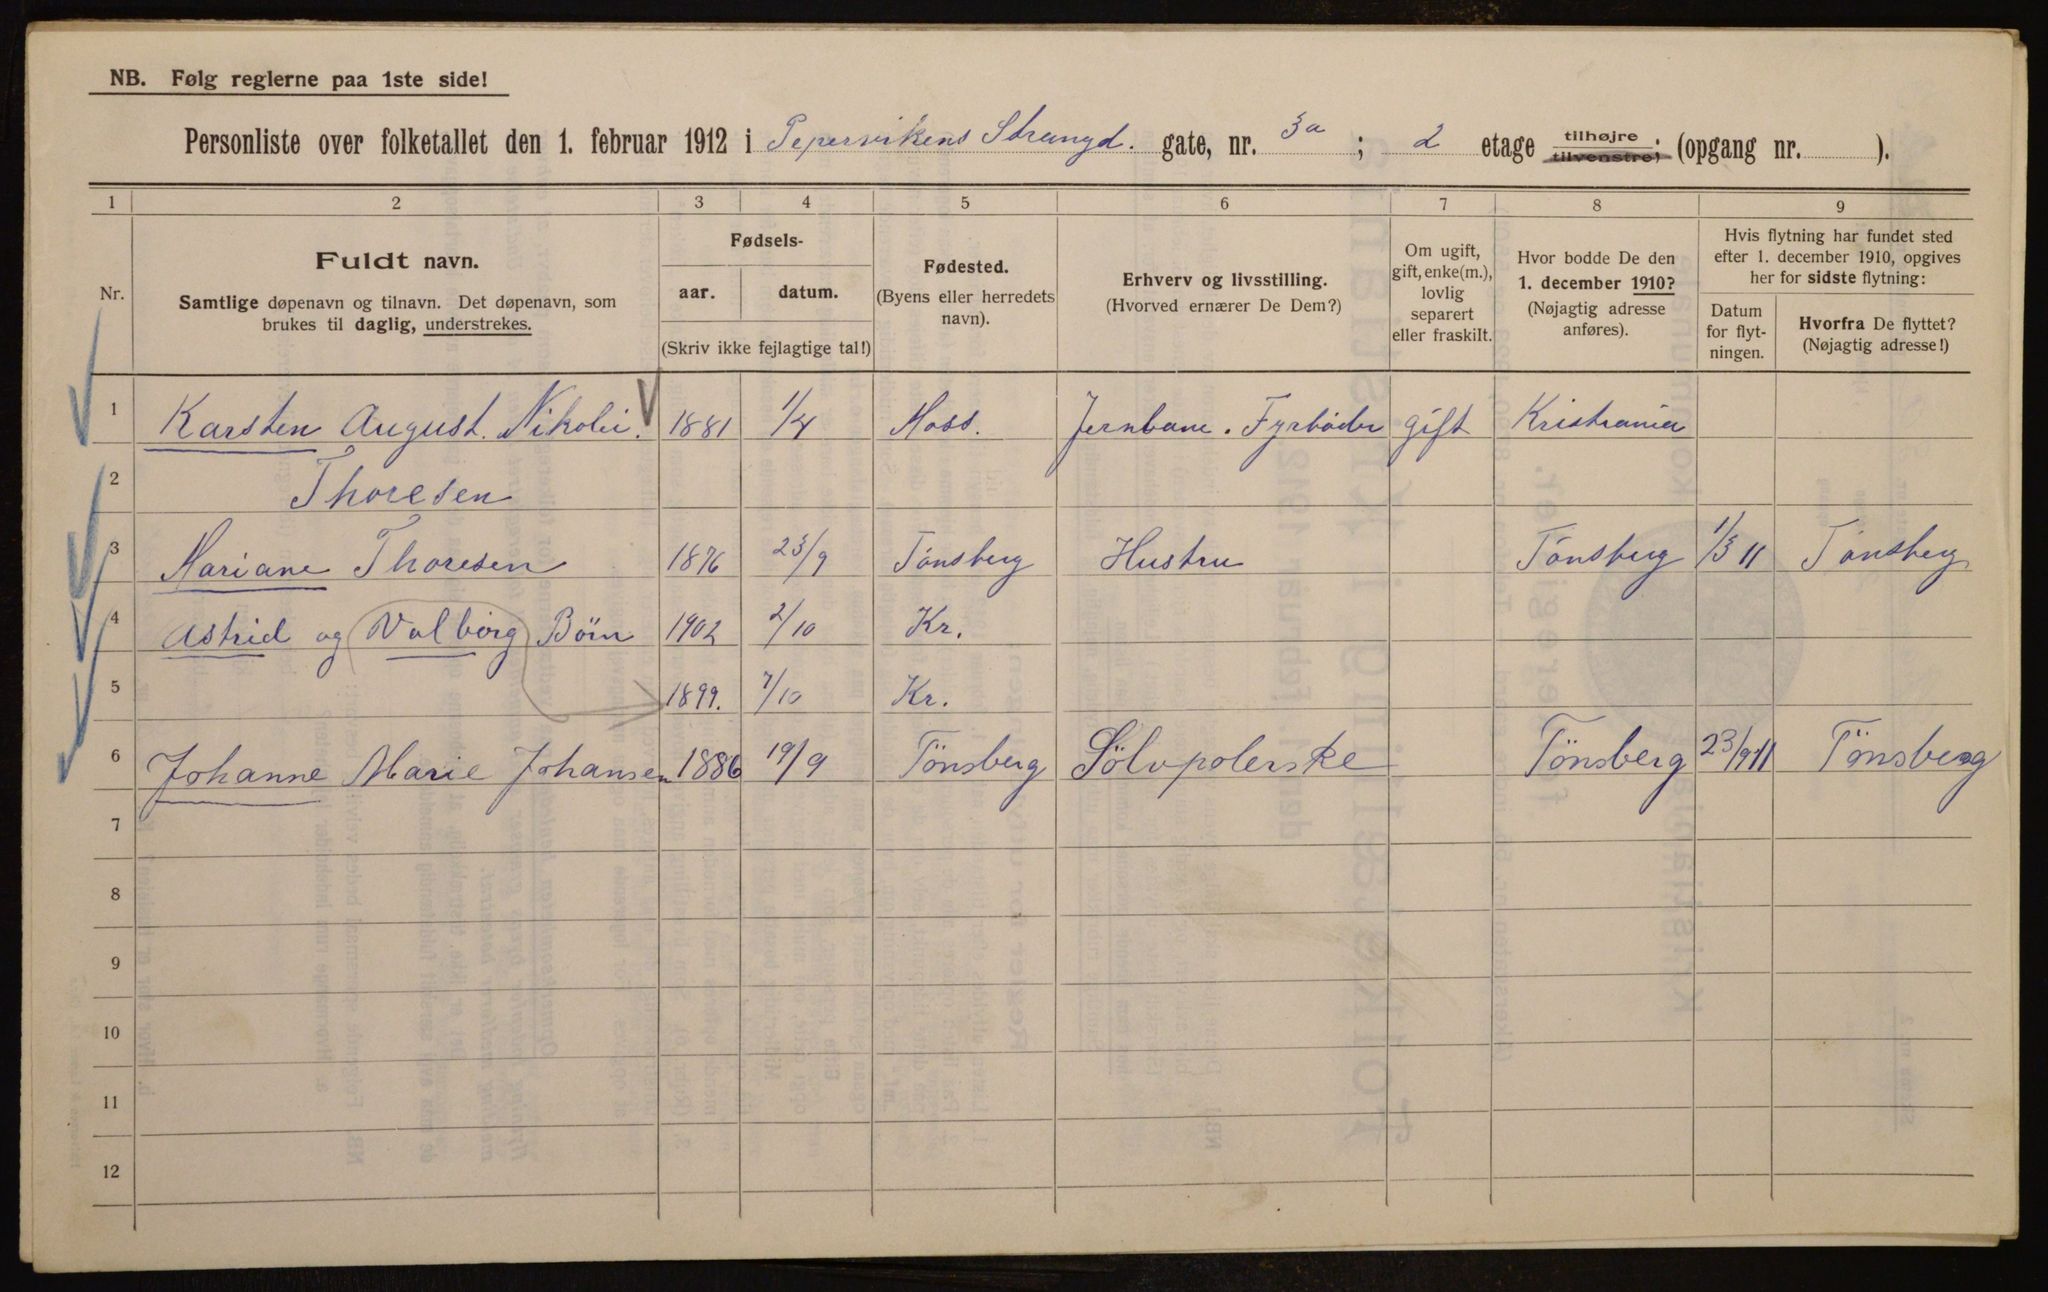 NB. Følg reglerne paa 1ste side!
Personliste over folketallet den 1. februar 1912 i Pepervikens Strangd. gate, nr. 3a ; 2 etage tilhøjre tilvenstre; (opgang nr. ).
1 2 3 4 5 6 7 8 9
Nr.
Fuldt navn.
Samtlige døpenavn og tilnavn. Det døpenavn, som
brukes til daglig, understrekes.
Fødsels-
aar. datum.
(Skriv ikke fejlagtige tal!)
Fødested.
(Byens eller herredets
navn).
Erhverv og livsstilling.
(Hvorved ernærer De Dem?)
Om ugift,
gift, enke(m.),
lovlig
separert
eller fraskilt.
Hvor bodde De den
1. december 1910?
(Nøjagtig adresse
anføres).
Hvis flytning har fundet sted
efter 1. december 1910, opgives
her for sidste flytning:
Datum
for flyt-
ningen.
Hvorfra De flyttet?
(Nøjagtig adresse!)
1 Karsten August. Nikolei. 1881 1/4 Moss. Jernbane. Fyrbøder gift Kristiania
2 Thoresen
3 Mariane Thoresen 1876 23/9 Tønsberg Hustru Tønsberg 1/3 11 Tønsberg
4 Astrid og Valborg Börn 1902 2/10 Kr.
5 1899. 7/10 Kr.
6 Johanne Marie Johansen 1886 19/9 Tönsberg Sölvpolerske Tönsberg 23/9 11 Tönsberg
7
8
9
10
11
12